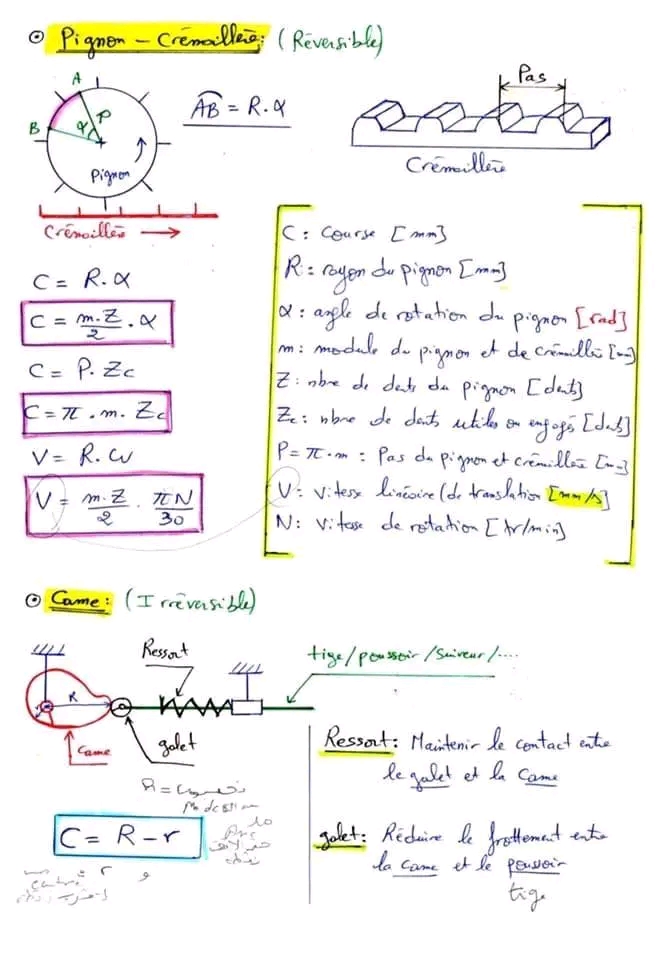 ⊙ Pignon – Crémaillère: (Réversible)
A
B
R
α
Pignon
Crémaillère →
AB = R.α
Pas
Crémaillère
C = R.α
C = m.Z/2 . α
C = P. Zc
C = π . m. Zc
V = R. ω
V = m.Z/2 . πN/30
C: Course [mm]
R: rayon du pignon [mm]
α: angle de rotation du pignon [rad]
m: module du pignon et de crémaillère [mm]
Z: nbre de dents du pignon [dents]
Zc: nbre de dents utiles ou engagé [dents]
P = π.m : Pas du pignon et crémaillère [mm]
V: vitesse linéaire (de translation [mm/s]
N: vitesse de rotation [tr/min]
⊙ Came: (Irréversible)
Ressort
tige/poussoir/suiveur/....
R
Came
galet
C = R – r
Ressort: Maintenir le contact entre
le galet et la Came
galet: Réduire le frottement entre
la came et le poussoir
tige